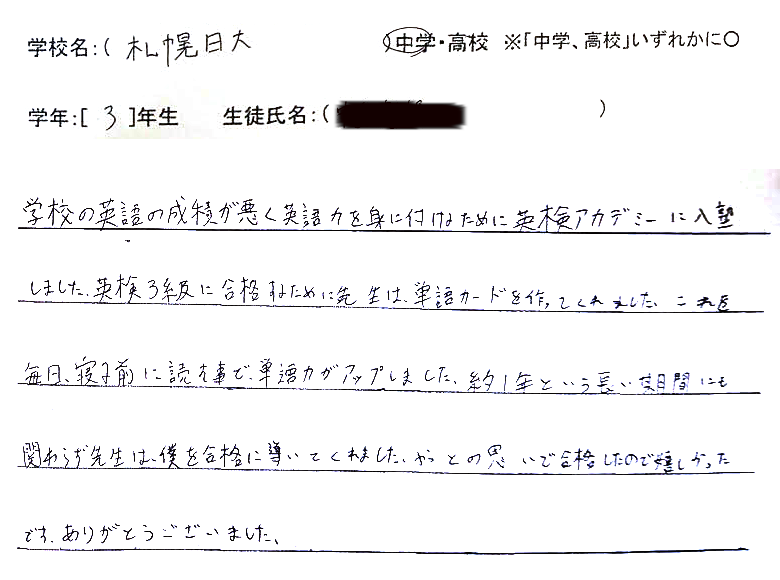 学校名:( 札幌日大 中学・高校 ※「中学、高校」いずれかに○
学年:[ 3 ]年生 生徒氏名:( )
学校の英語の成績が悪く英語力を身に付けるために英検アカデミーに入塾
しました。英検3級に合格するために先生は、単語カードを作ってくれました。これを
毎日、寝る前に読む事で、単語力がアップしました。約1年という長い期間にも
関わらず先生は、僕を合格に導いてくれました。やっとの思いで合格したので嬉しかった
です。ありがとうございました。